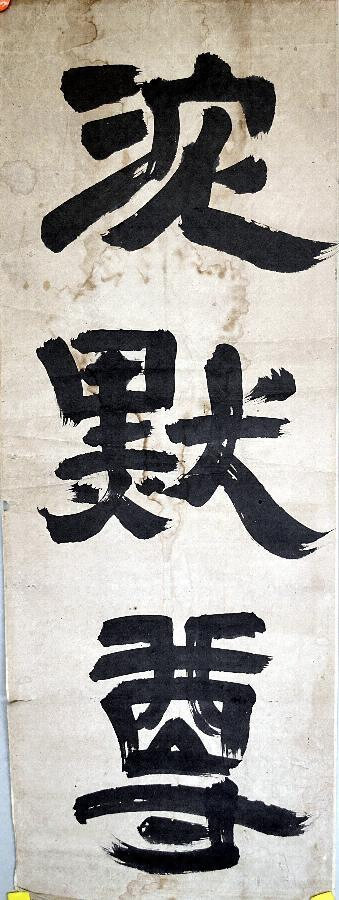 沈默尊